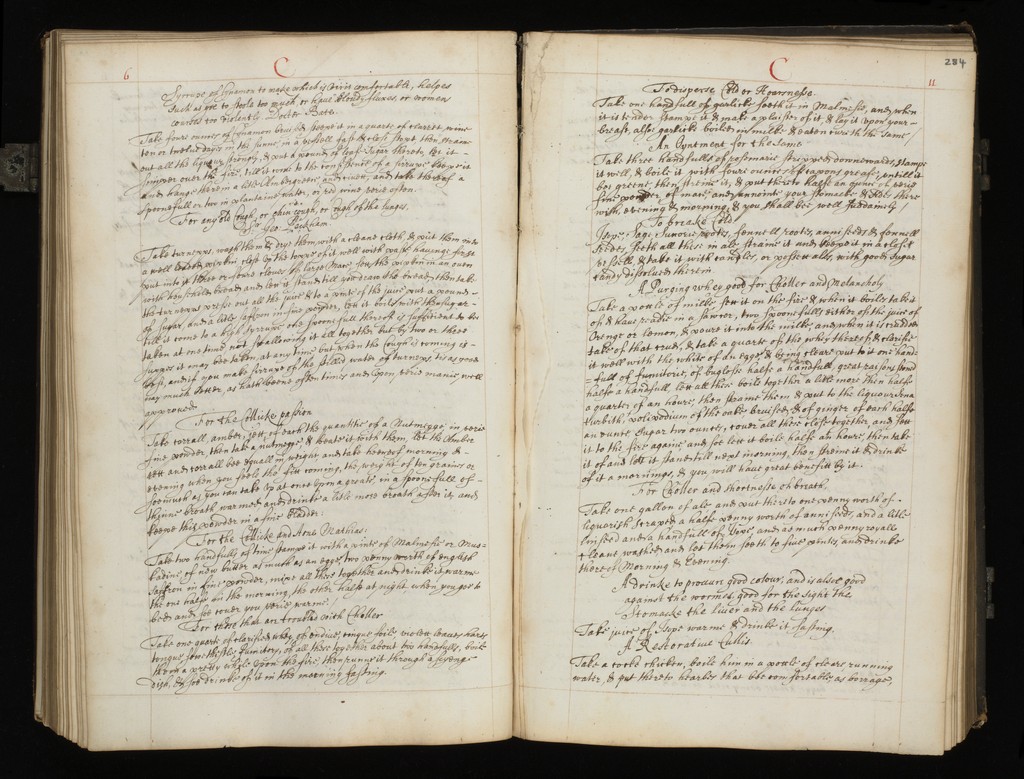 6
C
Syrrupe of Synamon to make which is verie comfortable, helpes
such as goe to stoole too much, or have bloudy fluxes, or women
courses too violently. Docter Bate.
Take foure ounces of Synamon bruised steepe it in a quarte of clarrett wine
ten or twelve dayes in the sunne, in a vessell fast & close stopt then straine
out all the liquor strongly, & put a pound of loafe Sugar thereto, let it
simmer over the fire, till it come to the consistence of a sirrupe keepe it
and hange therein a litle Ambergreece, and take thereof a
spoonefull or two in plantaine water, or red wine verie often.
For any old Cough, or chin cough, or Cough of the lunges.
Sr Geo. Peckham.
Take turneps, wash them & drye them with a cleane cloth, & put them into
a well leaded pipkin close up the cover of it well with past haveinge first
put into it three or foure cloves & large Mace, sett the pipkin in an oven
with houshold bread and lett it stand till you draw the bread, then take
the turneps presse out all the juice & to a pinte of the juice put a pound
of Sugar, and a litle saffron in fine powder, lett it boile with the Sugar
till it come to a high syrrupe one spoonefull thereof is sufficient to be
taken at one time not swallowing it all together but by two or three
supps it may bee taken at any time but when the cough is coming is
best, and if you make sirrupe of the stilled water of turneps tis as good
nay much better, as hath beene often times and upon verie manie, well
approoved.
For the Collicke passion
Take corrall, amber, jett, of each the quantitie of a Nutmegge, in verie
fine powder, then take a nutmegge & beate it with them, lett the Amber
jett and corrall bee equall in weight and take hereof morning &
evening when you feele the fitt coming, the weight of ten graines or
soe much as you can take up at once upon a groate, in a spoonefull of
thinne broath warmed and drinke a litle more broath after it, and
keepe this powder in a fine bladder.
For the Collicke and Stone Mathias.
Take two handfulls of time stampe it with a pinte of Malmesie or Mus-
kadine of new butter as much as an egge, two penny worth of english
saffron in fine powder, mixe all these together and drinke it warme
the one halfe in the morning, the other halfe at night when you goe to
bed and soe cover you verie warme.
For those that are troubled with Choller
Take one quarte of clarified whey, of endive, tongue, violett leaves, harts
tongue, sowthistle, fumitory, of all these together about two handfulls, boile
them a pretty while upon the fire, then runne it through a spunge
dish, & soe drinke of it in the morning fasting.
284
C
11
To disperse Cold or Hoarsnesse.
Take one handfull of garlicke seeth it in Malmesie, and when
it is tender stampe it & make a plaister of it, & lay it upon your
breast, alsoe garlicke boiled in milke & eaten cureth the same
An Oyntment for the same
Take three handfulls of rosemarie stripped downewards, stampe
it well, & boile it with foure ounces of capons grease, untill it
bee greene then streine it, & put thereto halfe an ounce of verie
fine powder of mace, and annointe your stomacke & holes there
with, evening & morning, & you shall bee well suddainely
To breake Cold
Isope, Sage, Sunorie rootes, fennell rootes, anniseeds & fennell
seedes, seeth all these in ale straine it and keepe it in a close
vessell, & take it with caudles, or possett ales, with good Sugar
candy dissolved therein.
A Purging whey good for Choller and Melancholy
Take a pottle of milke sett it on the fire & when it boiles take it
of & have readie in a sawcer, two spoonefulls either of the juice of
Orenge or lemon, & powre it into the milke, and when it is crudded
take of that crudd, & take a quarte of the whey thereof & clarifie
it well with the white of an egge, & being cleare put to it one hand-
=full of fumitorie, of buglosse halfe a handfull, great raisons stond
halfe a handfull, lett all these boile together a litle more then halfe
a quarter of an houre, then straine them & put to the liquour Sena
turbith, polipodium of the oake bruised, & of ginger of each halfe
an ounce Sugar two ounces, cover all these close together, and sett
it to the fire againe and soe lett it boile halfe an houre, then take
it of and lett it stand till next morning, then streine it & drinke
of it a mornings, & you will have great benefitt by it.
For Choller and shortnesse of breath
Take one gallon of ale and put thereto one penny worth of
liquerish scraped a halfe penny worth of anniseeds, and a litle
linseed and a handfull of Isope, and as much pennyroyall
cleane washed and let them seeth to five pintes, and drinke
thereof Morning & Evening.
A drinke to procure good colour, and is alsoe good
against the wormes, good for the sight the
Stomacke the liver and the lunges
Take juice of Isope warme & drinke it fasting.
A Restorative Cullis.
Take a cockd chicken, boile him in a pottle of cleare running
water, & put thereto hearbes that bee comfortable, as borrage,